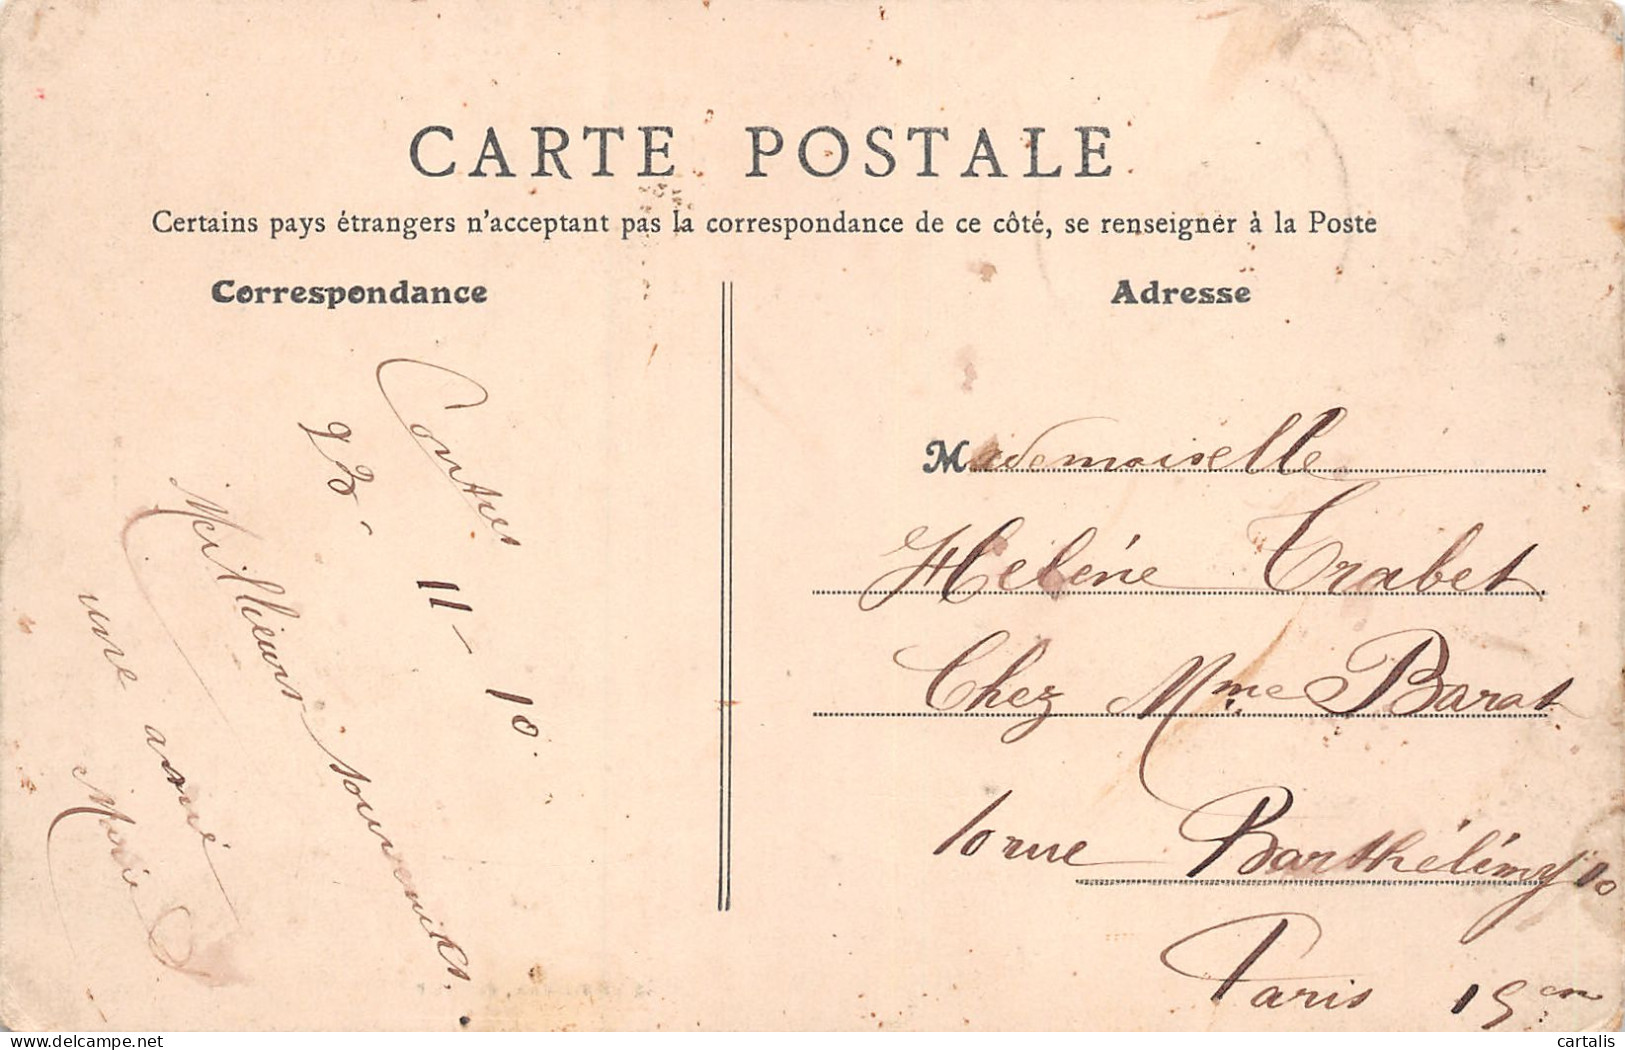 CARTE POSTALE
Certains pays étrangers n'acceptant pas la correspondance de ce côté, se renseigner à la Poste
Correspondance
Contres 11 - 10
Meilleurs souvenirs
une amie
Marie
Adresse
Mademoiselle
Heléne Trabet
Chez Mme Barat
10 rue Barthélémy 10
Paris 15em
cartalis
delcampe.net